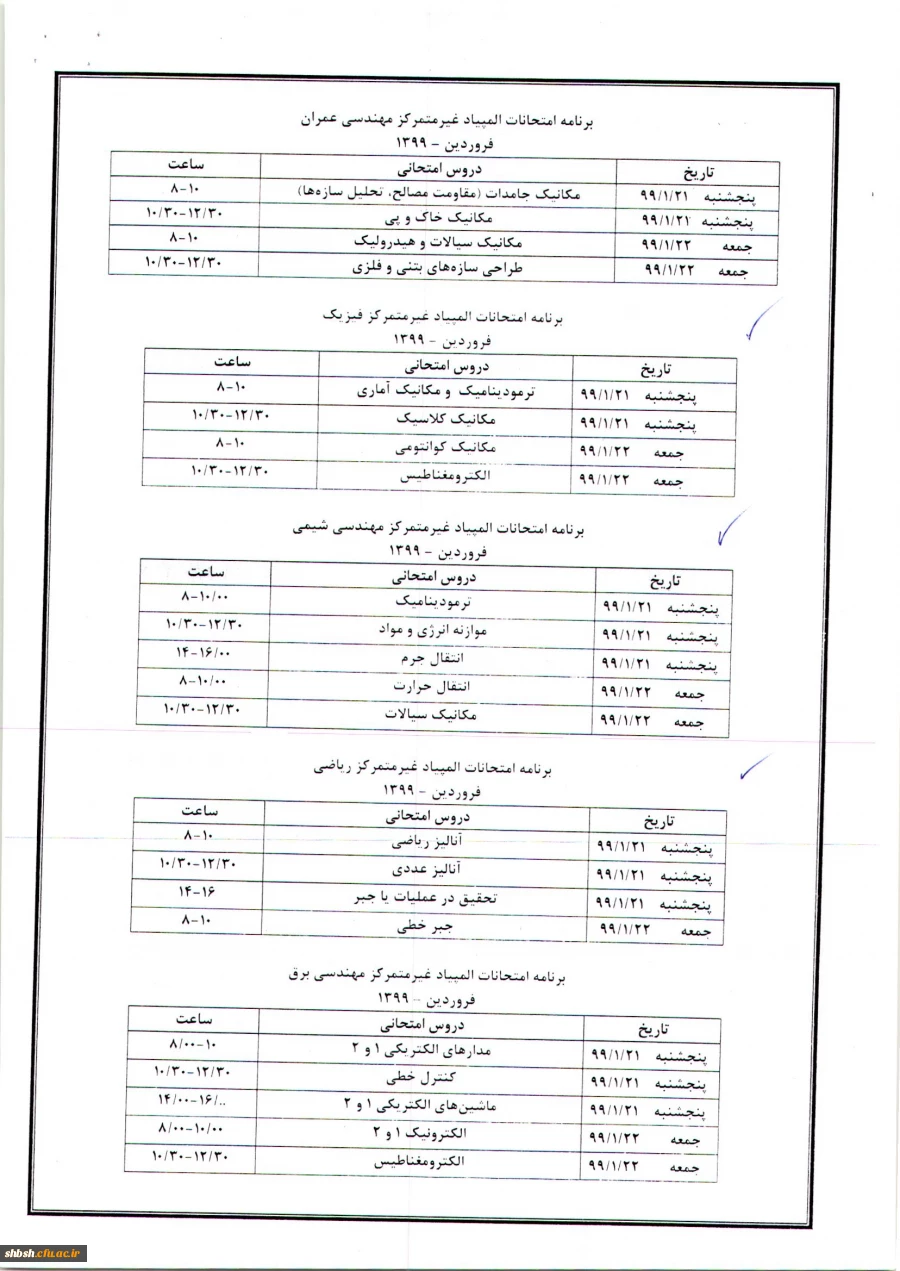 برنامه امتحانات المپیاد غیرمتمرکز مهندسی عمران
فروردین - ۱۳۹۹
تاریخ دروس امتحانی ساعت
پنجشنبه ۹۹/۱/۲۱ مکانیک جامدات (مقاومت مصالح، تحلیل سازه‌ها) ۸-۱۰
پنجشنبه ۹۹/۱/۲۱ مکانیک خاک و پی ۱۰/۳۰-۱۲/۳۰
جمعه ۹۹/۱/۲۲ مکانیک سیالات و هیدرولیک ۸-۱۰
جمعه ۹۹/۱/۲۲ طراحی سازه‌های بتنی و فلزی ۱۰/۳۰-۱۲/۳۰
برنامه امتحانات المپیاد غیرمتمرکز فیزیک
فروردین - ۱۳۹۹
تاریخ دروس امتحانی ساعت
پنجشنبه ۹۹/۱/۲۱ ترمودینامیک و مکانیک آماری ۸-۱۰
پنجشنبه ۹۹/۱/۲۱ مکانیک کلاسیک ۱۰/۳۰-۱۲/۳۰
جمعه ۹۹/۱/۲۲ مکانیک کوانتومی ۸-۱۰
جمعه ۹۹/۱/۲۲ الکترومغناطیس ۱۰/۳۰-۱۲/۳۰
برنامه امتحانات المپیاد غیرمتمرکز مهندسی شیمی
فروردین - ۱۳۹۹
تاریخ دروس امتحانی ساعت
پنجشنبه ۹۹/۱/۲۱ ترمودینامیک ۸-۱۰/۰۰
پنجشنبه ۹۹/۱/۲۱ موازنه انرژی و مواد ۱۰/۳۰-۱۲/۳۰
پنجشنبه ۹۹/۱/۲۱ انتقال جرم ۱۴-۱۶/۰۰
جمعه ۹۹/۱/۲۲ انتقال حرارت ۸-۱۰/۰۰
جمعه ۹۹/۱/۲۲ مکانیک سیالات ۱۰/۳۰-۱۲/۳۰
برنامه امتحانات المپیاد غیرمتمرکز ریاضی
فروردین - ۱۳۹۹
تاریخ دروس امتحانی ساعت
پنجشنبه ۹۹/۱/۲۱ آنالیز ریاضی ۸-۱۰
پنجشنبه ۹۹/۱/۲۱ آنالیز عددی ۱۰/۳۰-۱۲/۳۰
پنجشنبه ۹۹/۱/۲۱ تحقیق در عملیات یا جبر ۱۴-۱۶
جمعه ۹۹/۱/۲۲ جبر خطی ۸-۱۰
برنامه امتحانات المپیاد غیرمتمرکز مهندسی برق
فروردین - ۱۳۹۹
تاریخ دروس امتحانی ساعت
پنجشنبه ۹۹/۱/۲۱ مدارهای الکتریکی ۱ و ۲ ۸/۰۰-۱۰
پنجشنبه ۹۹/۱/۲۱ کنترل خطی ۱۰/۳۰-۱۲/۳۰
پنجشنبه ۹۹/۱/۲۱ ماشین‌های الکتریکی ۱ و ۲ ۱۴/۰۰-۱۶/..
جمعه ۹۹/۱/۲۲ الکترونیک ۱ و ۲ ۸/۰۰-۱۰/۰۰
جمعه ۹۹/۱/۲۲ الکترومغناطیس ۱۰/۳۰-۱۲/۳۰
shbsh.cfu.ac.ir